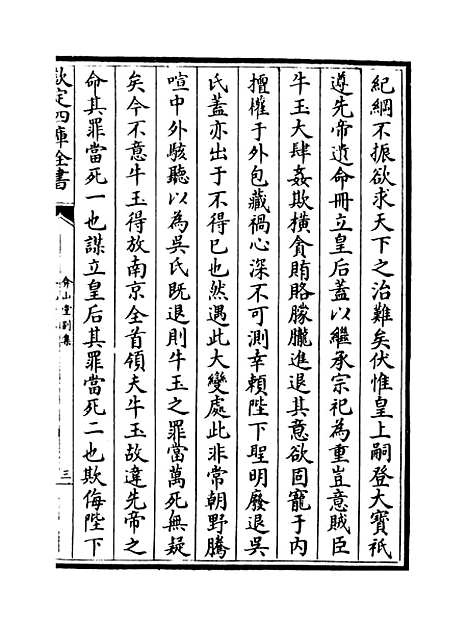 紀綱不振欲求天下之治難矣伏惟皇上嗣登大寶祇
遵先帝遺命冊立皇后蓋以繼承宗祀為重豈意賊臣
牛玉大肆姦欺橫貪賄賂朦朧進退其意欲固寵于内
擅權于外包藏禍心深不可測幸頼陛下聖明廢退吳
氏蓋亦出于不得已也然遇此大變處此非常朝野騰
喧中外駭聽以為吳氏既退則牛玉之罪當萬死無疑
矣今不意牛玉得放南京全首領夫牛玉故違先帝之
命其罪當死一也謀立皇后其罪當死二也欺侮陛下
欽定四庫全書
弇山堂别集
三